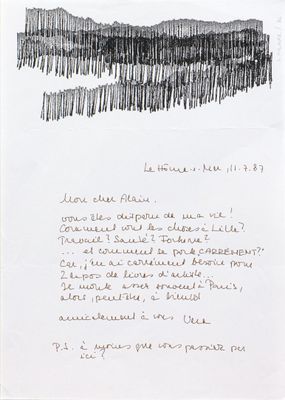 Le Home-s-Mer, 11.7.87
Mon cher Alain.
vous êtes disparu de ma vie!
Comment vont les choses à Lille?
Travail? Santé? Fortune?
... et comment se porte CARRÉMENT?
Car, j'en ai carrément besoin pour
2 expos de livres d'artiste...
Je monte assez souvent à Paris,
alors, peut-être, à bientôt
amicalement à vous Vera
P.S. à moins que vous passiez par
ici?